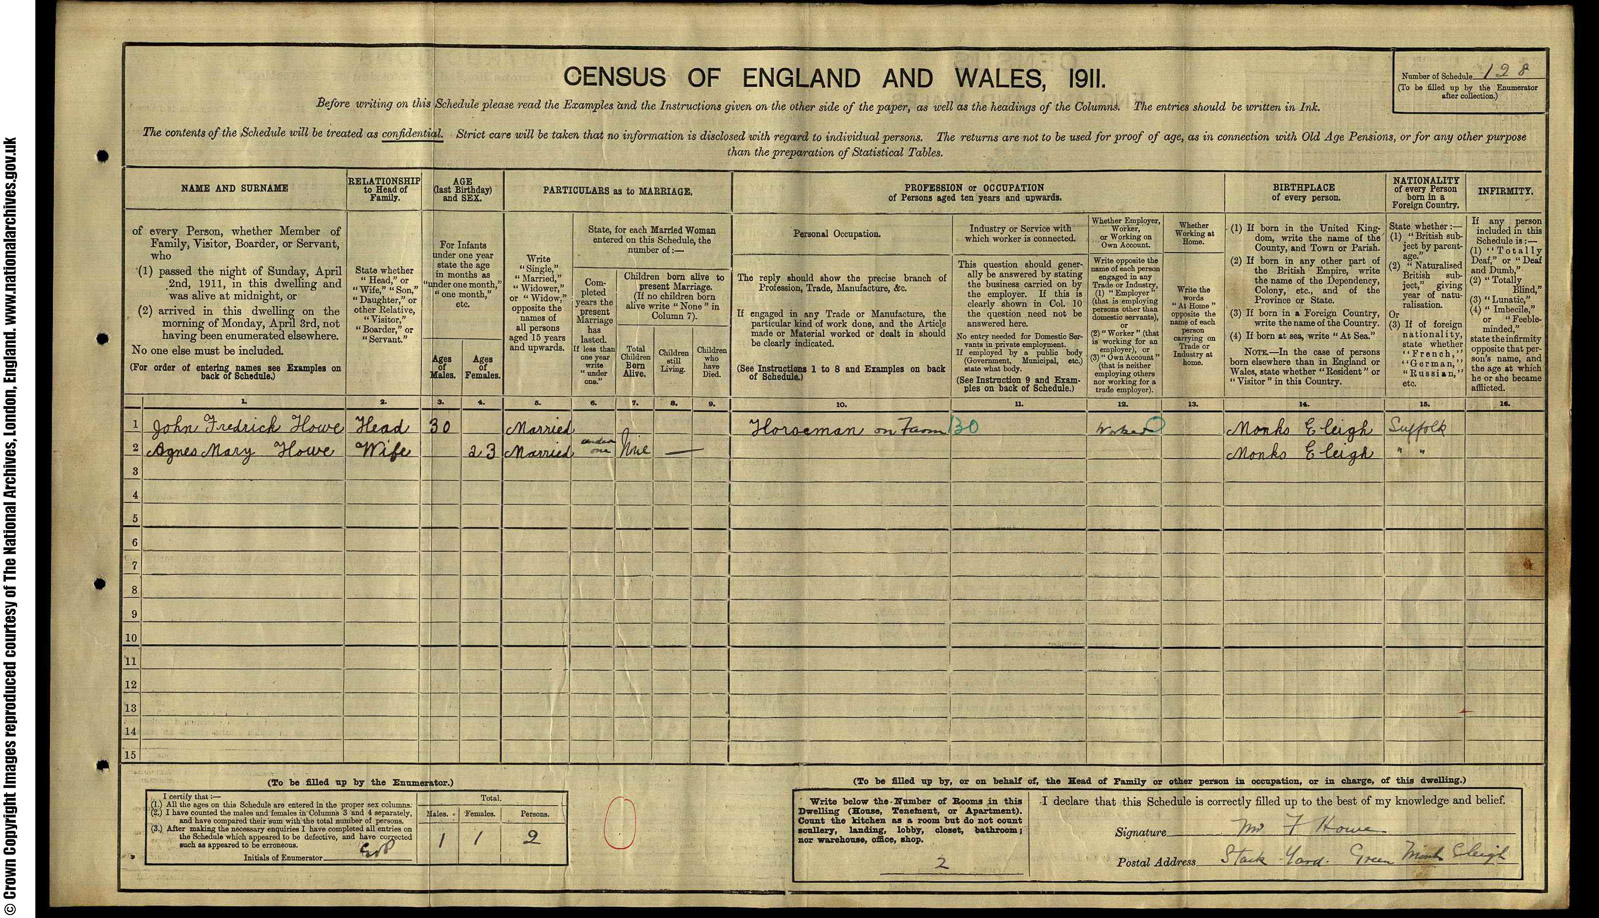 CENSUS OF ENGLAND AND WALES, 1911.
Number of Schedule 128
(To be filled up by the Enumerator
after collection.)
Before writing on this Schedule please read the Examples and the Instructions given on the other side of the paper, as well as the headings of the Columns. The entries should be written in Ink.
The contents of the Schedule will be treated as confidential. Strict care will be taken that no information is disclosed with regard to individual persons. The returns are not to be used for proof of age, as in connection with Old Age Pensions, or for any other purpose
than the preparation of Statistical Tables.
NAME AND SURNAME
of every Person, whether Member of
Family, Visitor, Boarder, or Servant,
who
(1) passed the night of Sunday, April
2nd, 1911, in this dwelling and
was alive at midnight, or
(2) arrived in this dwelling on the
morning of Monday, April 3rd, not
having been enumerated elsewhere.
No one else must be included.
(For order of entering names see Examples on
back of Schedule.)
RELATIONSHIP
to Head of
Family.
State whether
"Head," or
"Wife," "Son,"
"Daughter," or
other Relative,
"Visitor,"
"Boarder," or
"Servant."
AGE
(last Birthday)
and SEX.
For Infants
under one year
state the age
in months as
"under one month,"
"one month,"
etc.
Ages
of
Males.
Ages
of
Females.
PARTICULARS as to MARRIAGE.
Write
"Single,"
"Married,"
"Widower,"
or "Widow,"
opposite the
names of
all persons
aged 15 years
and upwards.
State, for each Married Woman
entered on this Schedule, the
number of:—
Com-
pleted
years the
present
Marriage
has
lasted.
If less than
one year
write
"under
one."
Children born alive to
present Marriage.
(If no children born
alive write "None" in
Column 7).
Total
Children
Born
Alive.
Children
still
Living.
Children
who
have
Died.
PROFESSION or OCCUPATION
of Persons aged ten years and upwards.
Personal Occupation.
The reply should show the precise branch of
Profession, Trade, Manufacture, &c.
If engaged in any Trade or Manufacture, the
particular kind of work done, and the Article
made or Material worked or dealt in should
be clearly indicated.
(See Instructions 1 to 8 and Examples on back
of Schedule.)
Industry or Service with
which worker is connected.
This question should gener-
ally be answered by stating
the business carried on by
the employer. If this is
clearly shown in Col. 10
the question need not be
answered here.
No entry needed for Domestic Ser-
vants in private employment.
If employed by a public body
(Government, Municipal, etc.)
state what body.
(See Instruction 9 and Exam-
ples on back of Schedule.)
Whether Employer,
Worker,
or Working on
Own Account.
Write opposite the
name of each person
engaged in any
Trade or Industry,
(1) "Employer"
(that is employing
persons other than
domestic servants),
or
(2) "Worker" (that
is working for an
employer), or
(3) "Own Account"
(that is neither
employing others
nor working for a
trade employer).
Whether
Working at
Home.
Write the
words
"At Home"
opposite the
name of each
person
carrying on
Trade or
Industry at
home.
BIRTHPLACE
of every person.
(1) If born in the United King-
dom, write the name of the
County, and Town or Parish.
(2) If born in any other part of
the British Empire, write
the name of the Dependency,
Colony, etc., and of the
Province or State.
(3) If born in a Foreign Country,
write the name of the Country.
(4) If born at sea, write "At Sea."
NOTE.—In the case of persons
born elsewhere than in England or
Wales, state whether "Resident" or
"Visitor" in this Country.
NATIONALITY
of every Person
born in a
Foreign Country.
State whether:—
(1) "British sub-
ject by parent-
age."
(2) "Naturalised
British sub-
ject," giving
year of natu-
ralisation.
Or
(3) If of foreign
nationality,
state whether
"French,"
"German,"
"Russian,"
etc.
INFIRMITY.
If any person
included in this
Schedule is:—
(1) "Totally
Deaf," or "Deaf
and Dumb,"
(2) "Totally
Blind,"
(3) "Lunatic,"
(4) "Imbecile,"
or "Feeble-
minded,"
state the infirmity
opposite that per-
son's name, and
the age at which
he or she became
afflicted.
1. 2. 3. 4. 5. 6. 7. 8. 9. 10. 11. 12. 13. 14. 15. 16.
1 John Fredrick Howe Head 30 Married Horseman on Farm 130 Worker Monks Eleigh Suffolk
2 Agnes Mary Howe Wife 23 Married under one — Monks Eleigh " "
3
4
5
6
7
8
9
10
11
12
13
14
15
(To be filled up by the Enumerator.)
I certify that:—
(1.) All the ages on this Schedule are entered in the proper sex columns.
(2.) I have counted the males and females in Columns 3 and 4 separately,
and have compared their sum with the total number of persons.
(3.) After making the necessary enquiries I have completed all entries on
the Schedule which appeared to be defective, and have corrected
such as appeared to be erroneous.
Initials of Enumerator
Total.
Males. Females. Persons.
1 1 2
0
(To be filled up by, or on behalf of, the Head of Family or other person in occupation, or in charge, of this dwelling.)
Write below the Number of Rooms in this
Dwelling (House, Tenement, or Apartment).
Count the kitchen as a room but do not count
scullery, landing, lobby, closet, bathroom;
nor warehouse, office, shop.
2
I declare that this Schedule is correctly filled up to the best of my knowledge and belief.
Signature Mr F Howe
Postal Address Stack Yard. Green Monks Eleigh
© Crown Copyright Images reproduced courtesy of The National Archives, London, England. www.nationalarchives.gov.uk